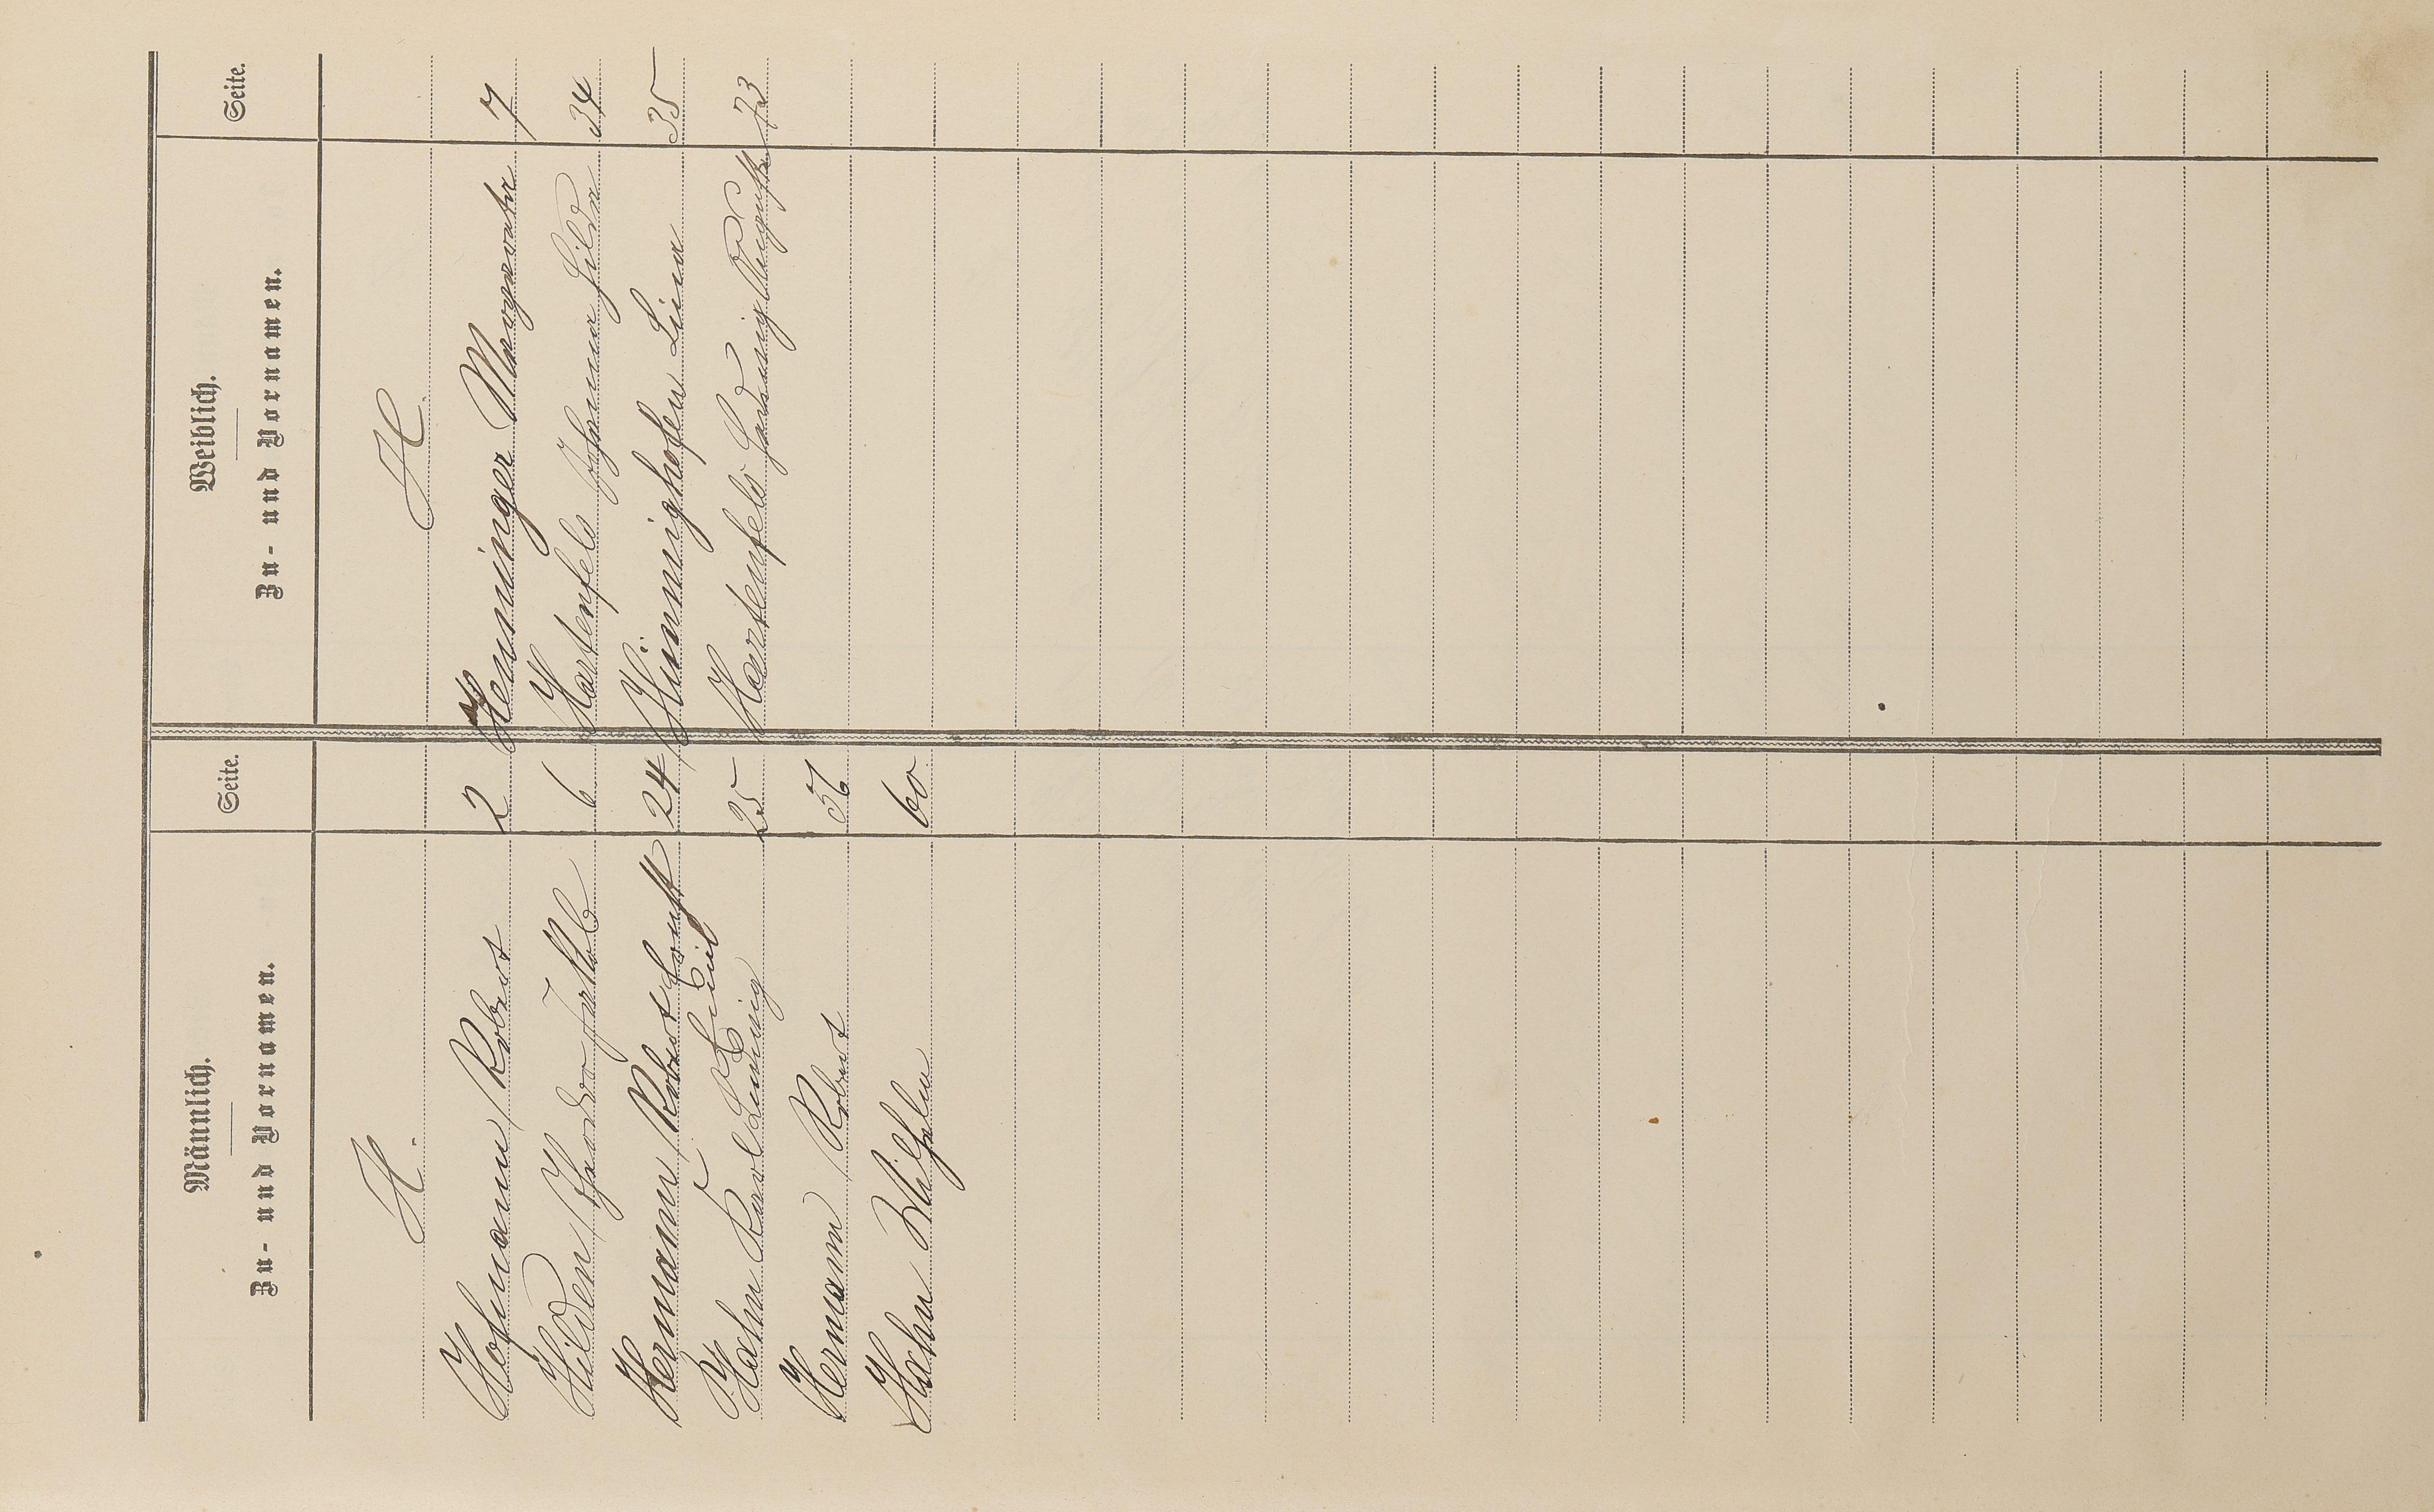 Männlich.
Zu- und Vornamen.
Seite.
Weiblich.
Zu- und Vornamen.
Seite.
H.
H.
Hofmann Robert 2
Hilden Theodor Jakob 6
Hermann Robert Ernst Emil 24
Hahn Karl Ludwig 25
Hermann Robert 56
Hahn Wilhelm 60
Henninger Margarete 7
Hartenfels Johanna Hilda 34
Hünnighofen Lina 35
Hartenfels Hedwig Auguste 73